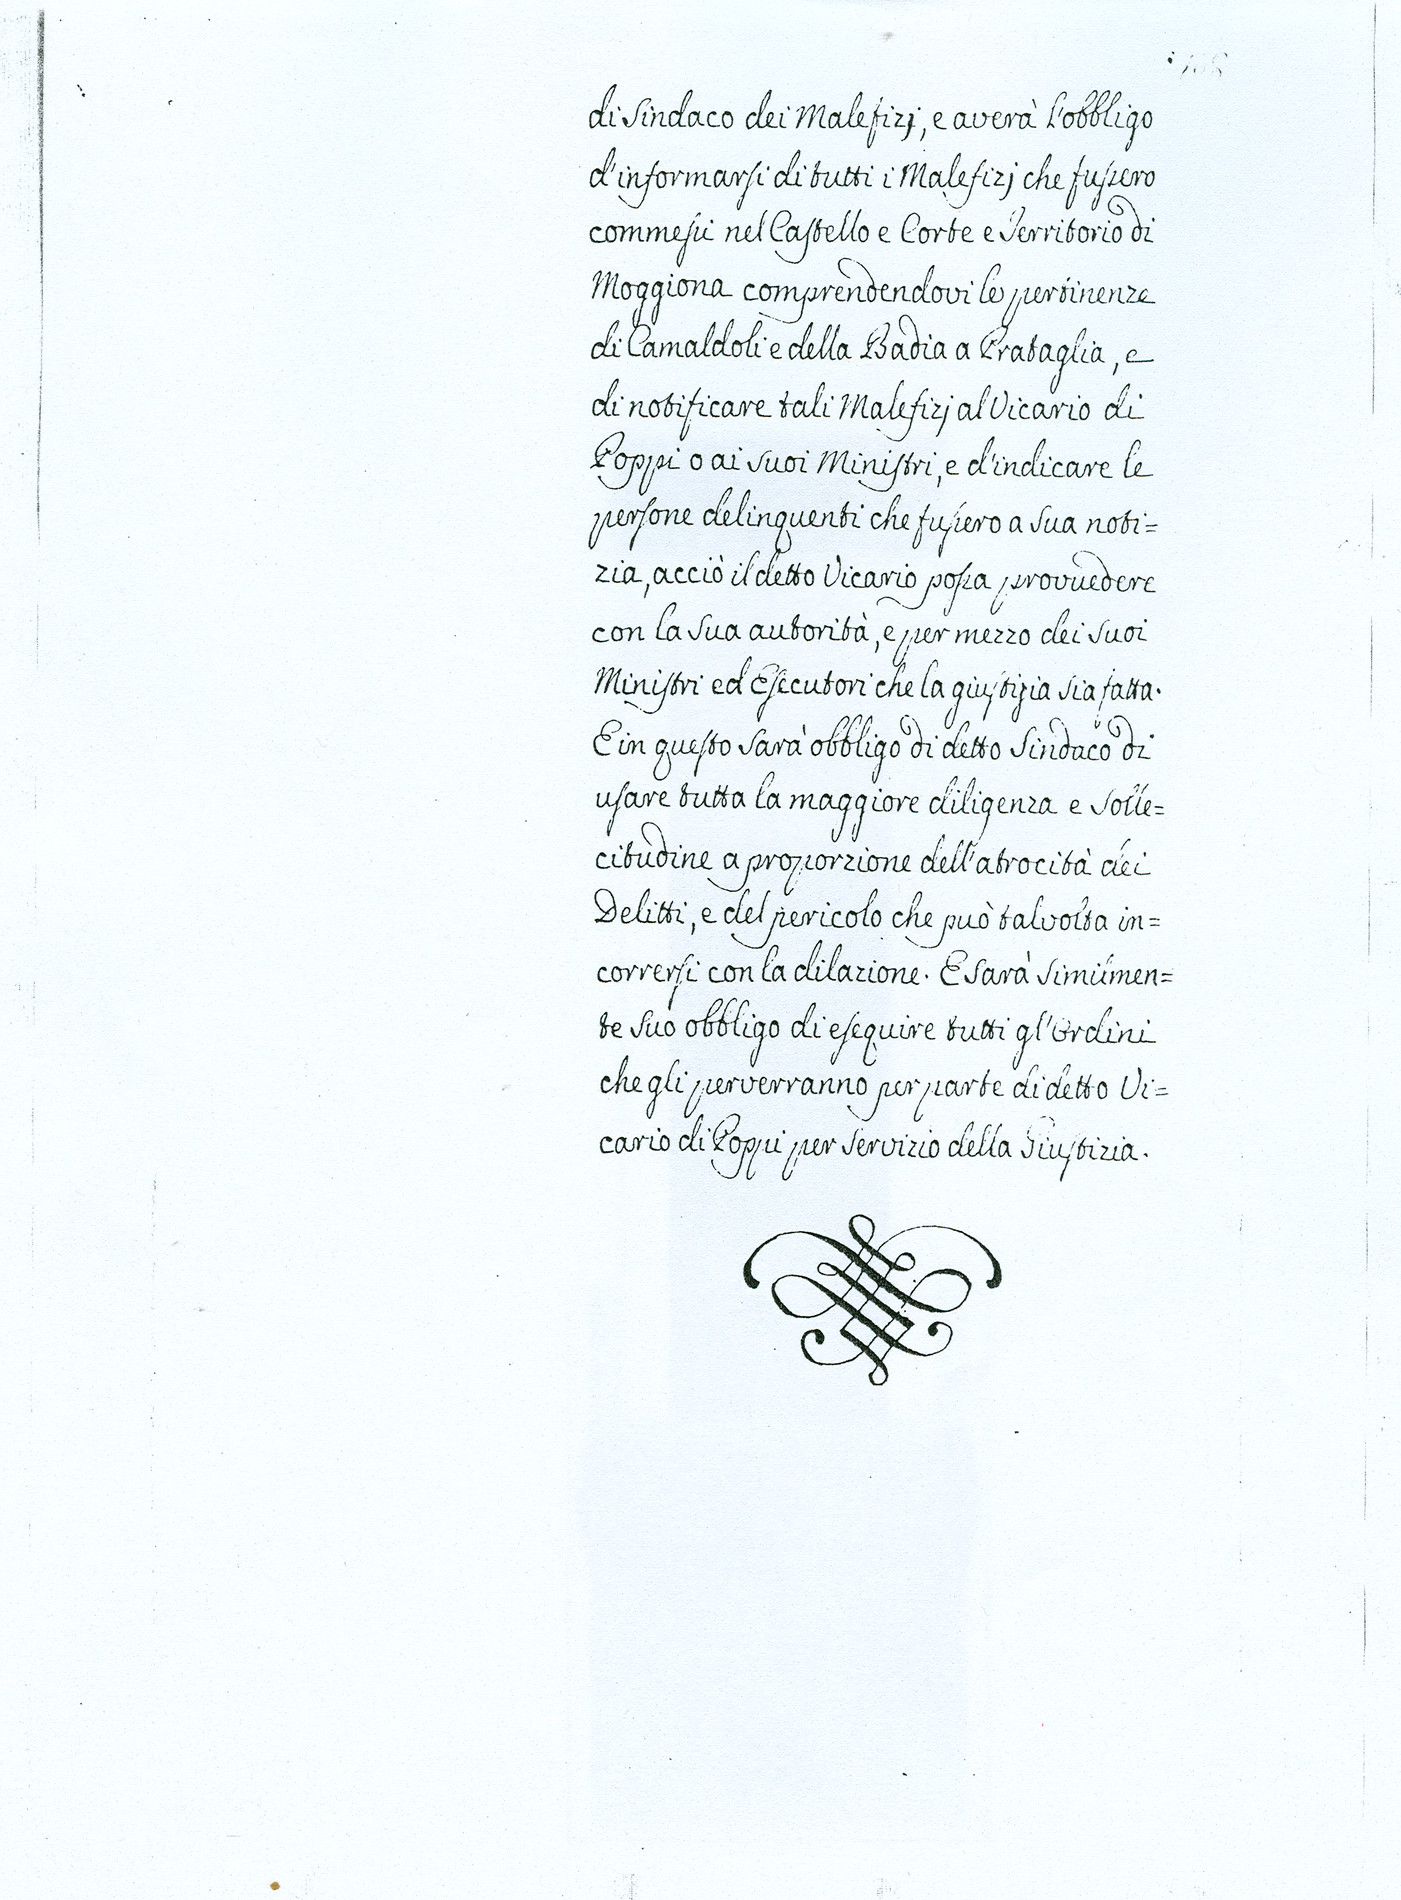 di Sindaco dei Malefizj, e averà l'obbligo
d'informarsi di tutti i Malefizj che fussero
commessi nel Castello e Corte e Territorio di
Moggiona comprendendovi le pertinenze
di Camaldoli e della Badia a Prataglia, e
di notificare tali Malefizj al Vicario di
Poppi o ai suoi Ministri, e d'indicare le
persone delinquenti che fussero a sua noti=
zia, acciò il detto Vicario possa provvedere
con la sua autorità, e per mezzo dei suoi
Ministri ed Esecutori che la giustizia sia fatta.
E in questo sarà obbligo di detto Sindaco di
usare tutta la maggiore diligenza e solle=
citudine a proporzione dell'atrocità dei
Delitti, e del pericolo che può talvolta in=
corrersi con la dilazione. E sarà similmen=
te suo obbligo di eseguire tutti gl'Ordini
che gli perverranno per parte di detto Vi=
cario di Poppi per servizio della Giustizia.